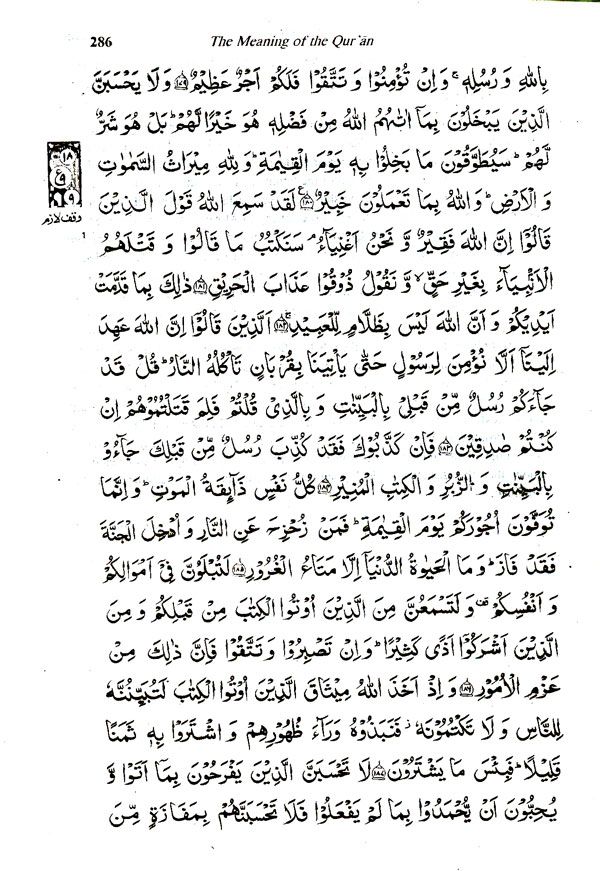 286 The Meaning of the Qur'ān
بِاللّٰهِ وَ رُسُلِهٖ ۚ وَ اِنْ تُؤْمِنُوْا وَ تَتَّقُوْا فَلَكُمْ اَجْرٌ عَظِيْمٌ ﴿۱۷۹﴾ وَ لَا يَحْسَبَنَّ
الَّذِيْنَ يَبْخَلُوْنَ بِمَاۤ اٰتٰىهُمُ اللّٰهُ مِنْ فَضْلِهٖ هُوَ خَيْرًا لَّهُمْ ؕ بَلْ هُوَ شَرٌّ
لَّهُمْ ؕ سَيُطَوَّقُوْنَ مَا بَخِلُوْا بِهٖ يَوْمَ الْقِيٰمَةِ ؕ وَ لِلّٰهِ مِيْرَاثُ السَّمٰوٰتِ
وَ الْاَرْضِ ؕ وَ اللّٰهُ بِمَا تَعْمَلُوْنَ خَبِيْرٌ ﴿۱۸۰﴾ لَقَدْ سَمِعَ اللّٰهُ قَوْلَ الَّذِيْنَ
وقف لازم
1
قَالُوْۤا اِنَّ اللّٰهَ فَقِيْرٌ وَّ نَحْنُ اَغْنِيَآءُ ۘ سَنَكْتُبُ مَا قَالُوْا وَ قَتْلَهُمُ
الْاَنْۢبِيَآءَ بِغَيْرِ حَقٍّ ۙ وَّ نَقُوْلُ ذُوْقُوْا عَذَابَ الْحَرِيْقِ ﴿۱۸۱﴾ ذٰلِكَ بِمَا قَدَّمَتْ
اَيْدِيْكُمْ وَ اَنَّ اللّٰهَ لَيْسَ بِظَلَّامٍ لِّلْعَبِيْدِ ﴿۱۸۲﴾ اَلَّذِيْنَ قَالُوْۤا اِنَّ اللّٰهَ عَهِدَ
اِلَيْنَاۤ اَلَّا نُؤْمِنَ لِرَسُوْلٍ حَتّٰى يَاْتِيَنَا بِقُرْبَانٍ تَاْكُلُهُ النَّارُ ؕ قُلْ قَدْ
جَآءَكُمْ رُسُلٌ مِّنْ قَبْلِيْ بِالْبَيِّنٰتِ وَ بِالَّذِيْ قُلْتُمْ فَلِمَ قَتَلْتُمُوْهُمْ اِنْ
كُنْتُمْ صٰدِقِيْنَ ﴿۱۸۳﴾ فَاِنْ كَذَّبُوْكَ فَقَدْ كُذِّبَ رُسُلٌ مِّنْ قَبْلِكَ جَآءُوْ
بِالْبَيِّنٰتِ وَ الزُّبُرِ وَ الْكِتٰبِ الْمُنِيْرِ ﴿۱۸۴﴾ كُلُّ نَفْسٍ ذَآىِٕقَةُ الْمَوْتِ ؕ وَ اِنَّمَا
تُوَفَّوْنَ اُجُوْرَكُمْ يَوْمَ الْقِيٰمَةِ ؕ فَمَنْ زُحْزِحَ عَنِ النَّارِ وَ اُدْخِلَ الْجَنَّةَ
فَقَدْ فَازَ ؕ وَ مَا الْحَيٰوةُ الدُّنْيَاۤ اِلَّا مَتَاعُ الْغُرُوْرِ ﴿۱۸۵﴾ لَتُبْلَوُنَّ فِيْۤ اَمْوَالِكُمْ
وَ اَنْفُسِكُمْ ۫ وَ لَتَسْمَعُنَّ مِنَ الَّذِيْنَ اُوْتُوا الْكِتٰبَ مِنْ قَبْلِكُمْ وَ مِنَ
الَّذِيْنَ اَشْرَكُوْۤا اَذًى كَثِيْرًا ؕ وَ اِنْ تَصْبِرُوْا وَ تَتَّقُوْا فَاِنَّ ذٰلِكَ مِنْ
عَزْمِ الْاُمُوْرِ ﴿۱۸۶﴾ وَ اِذْ اَخَذَ اللّٰهُ مِيْثَاقَ الَّذِيْنَ اُوْتُوا الْكِتٰبَ لَتُبَيِّنُنَّهٗ
لِلنَّاسِ وَ لَا تَكْتُمُوْنَهٗ ؗ فَنَبَذُوْهُ وَرَآءَ ظُهُوْرِهِمْ وَ اشْتَرَوْا بِهٖ ثَمَنًا
قَلِيْلًا ؕ فَبِئْسَ مَا يَشْتَرُوْنَ ﴿۱۸۷﴾ لَا تَحْسَبَنَّ الَّذِيْنَ يَفْرَحُوْنَ بِمَاۤ اَتَوْا وَّ
يُحِبُّوْنَ اَنْ يُّحْمَدُوْا بِمَا لَمْ يَفْعَلُوْا فَلَا تَحْسَبَنَّهُمْ بِمَفَازَةٍ مِّنَ